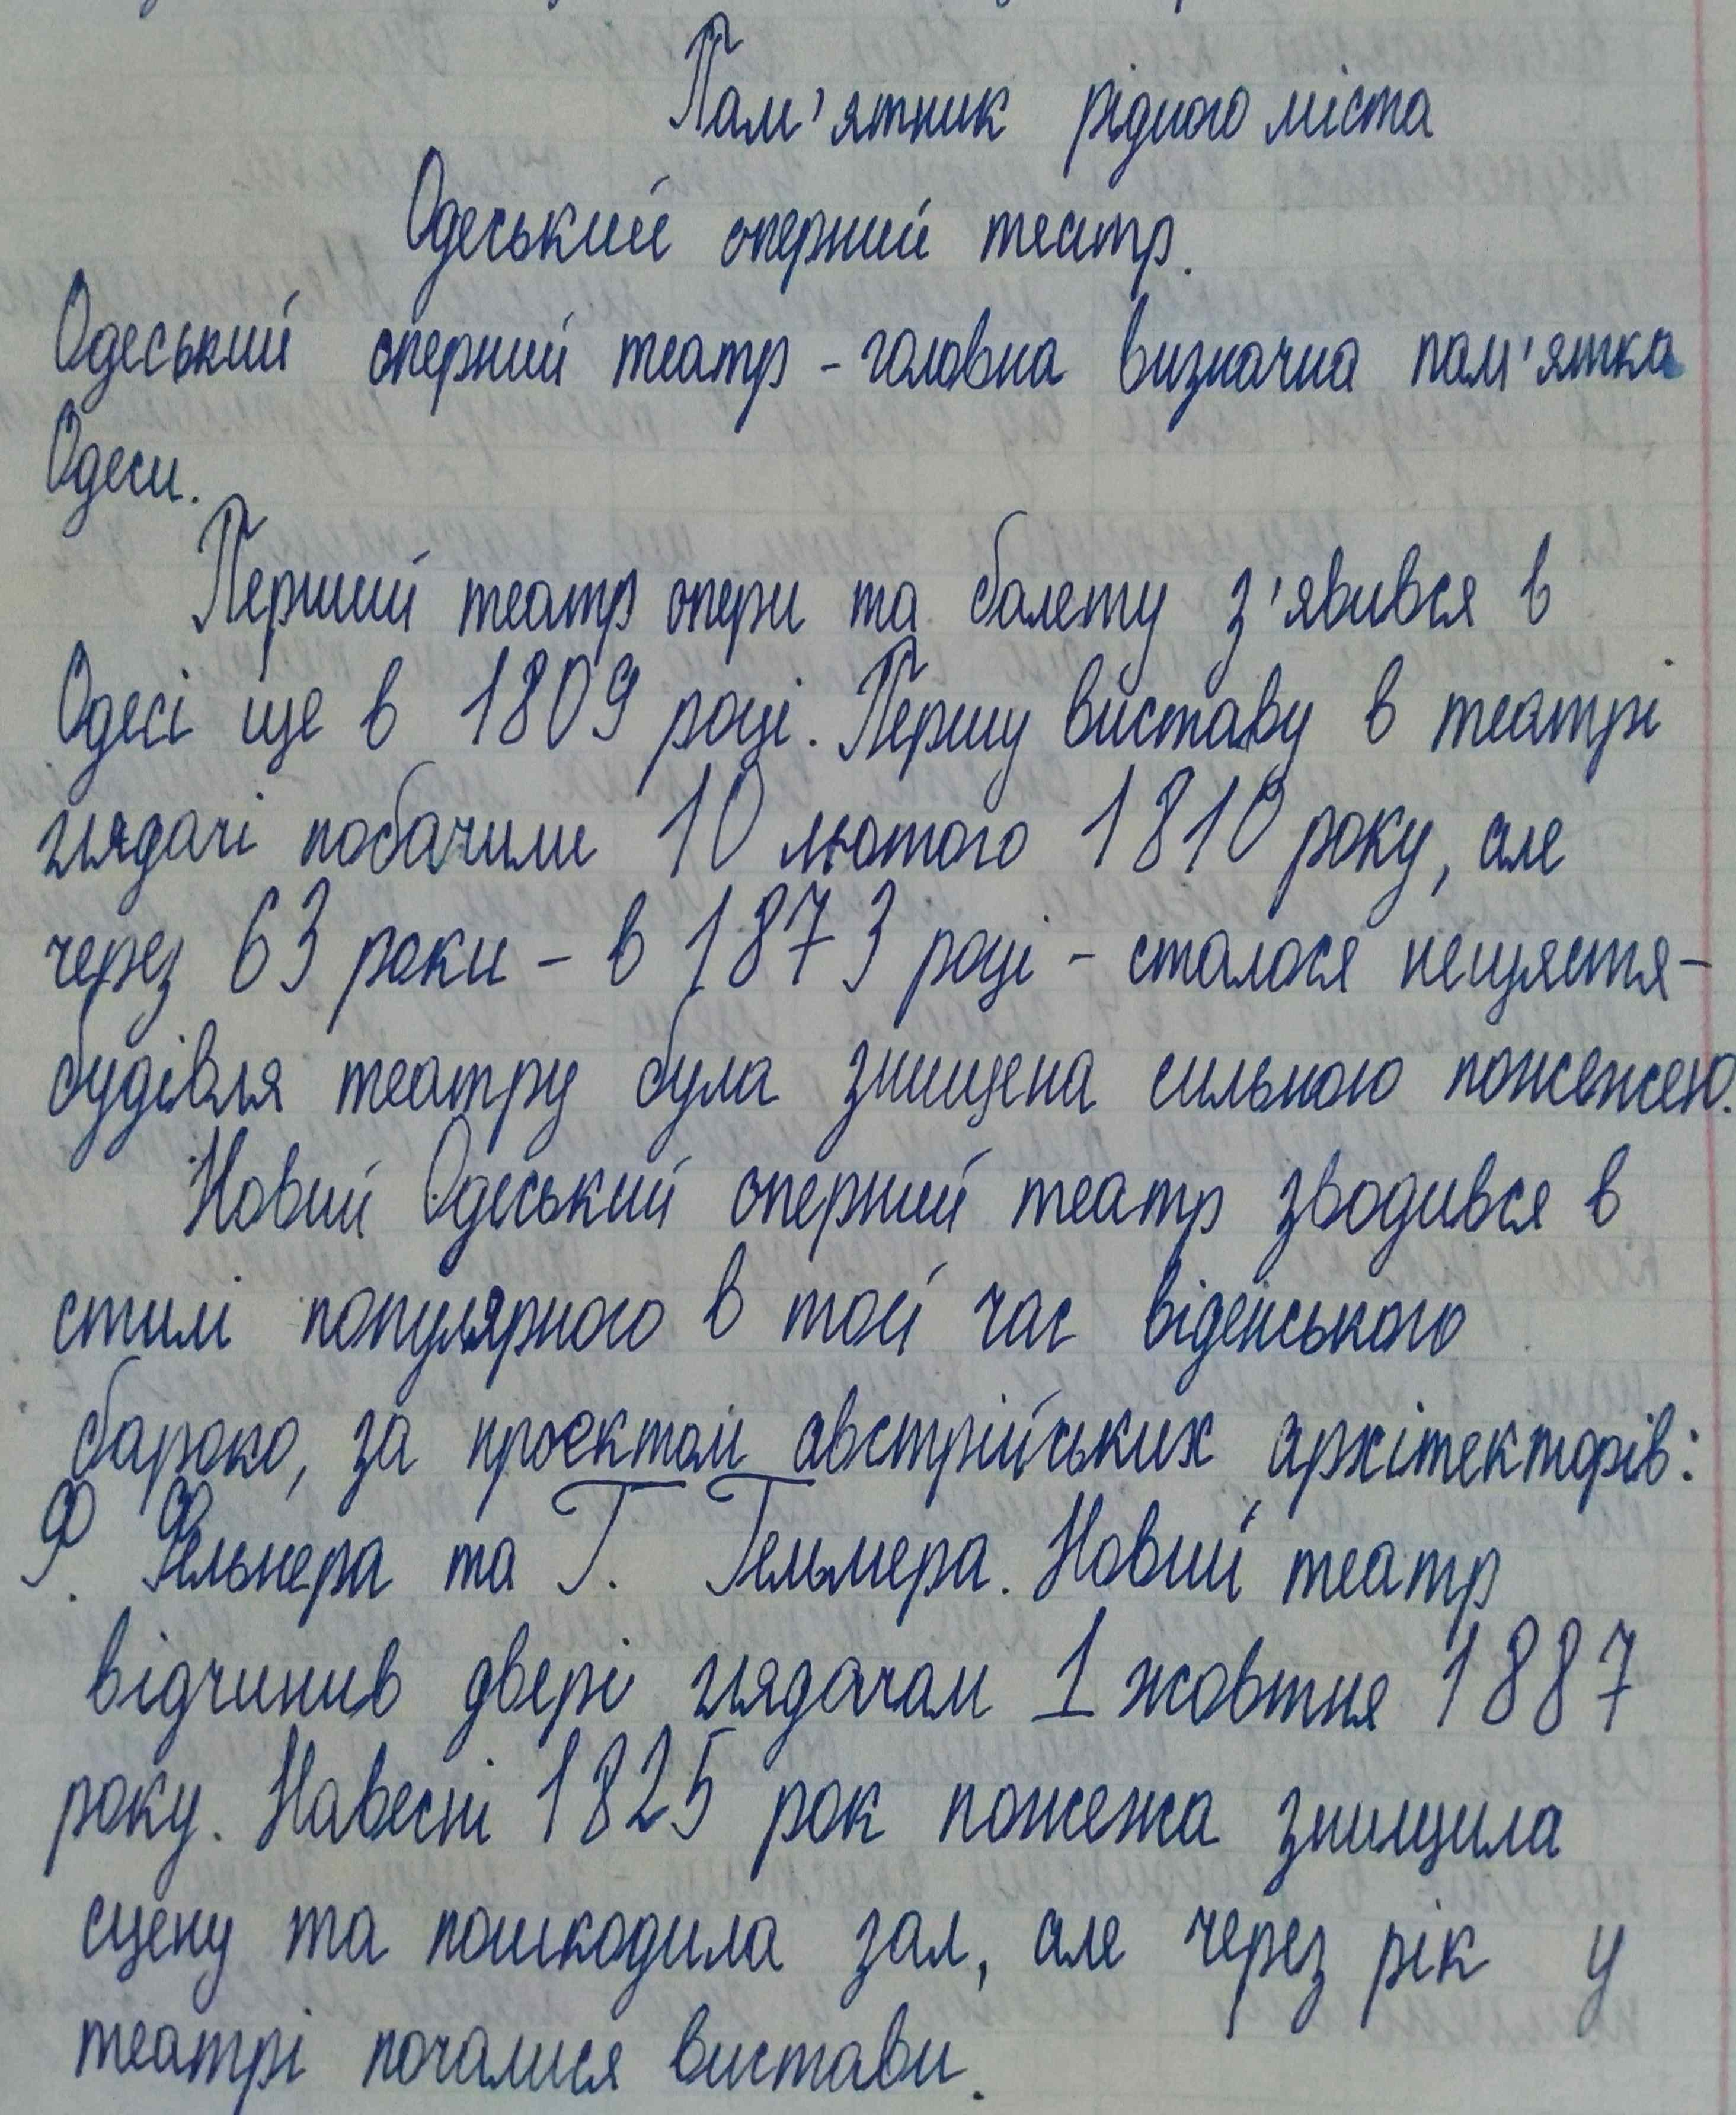 Пам'ятник рідного міста
Одеський оперний театр.
Одеський оперний театр - головна визначна пам'ятка
Одеси.
Перший театр опери та балету з'явився в
Одесі ще в 1809 році. Першу виставу в театрі
глядачі побачили 10 лютого 1810 року, але
через 63 роки - в 1873 році - сталося нещястя -
будівля театру була знищена сильною пожежею.
Новий Одеський оперний театр зводився в
стилі популярного в той час віденського
бароко, за проєктом австрійських архітекторів:
Ф. Фельнера та Г. Гельмера. Новий театр
відчинив двері глядачам 1 жовтня 1887
року. Навесні 1825 рок пожежа знищила
сцену та пошкодила зал, але через рік у
театрі почалися вистави.